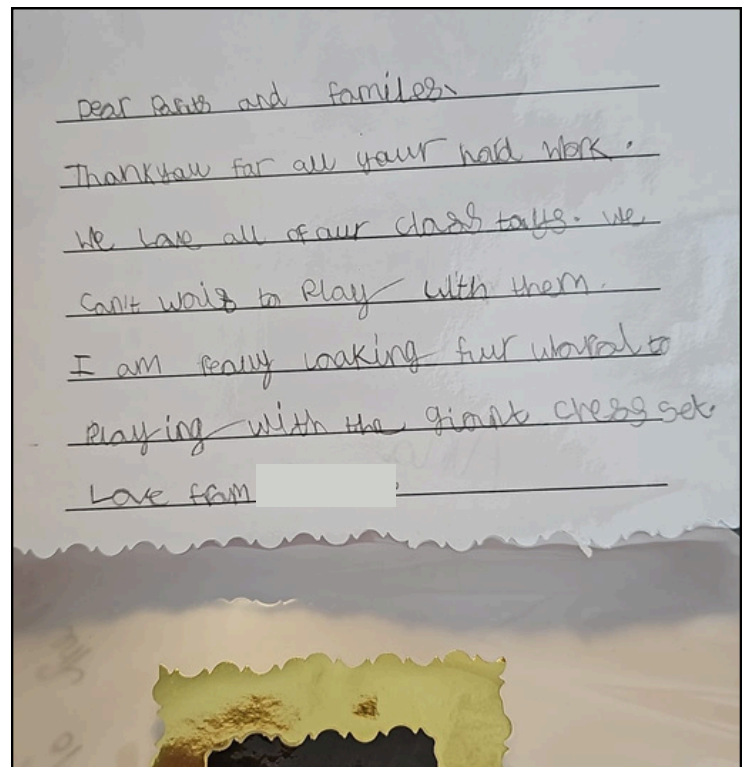 Dear Parits and familes.
Thankyou for all your hard work.
We Love all of our class toys. We
can't wait to Play with them.
I am really looking fur woral to
Playing with the giant chess set.
Love from